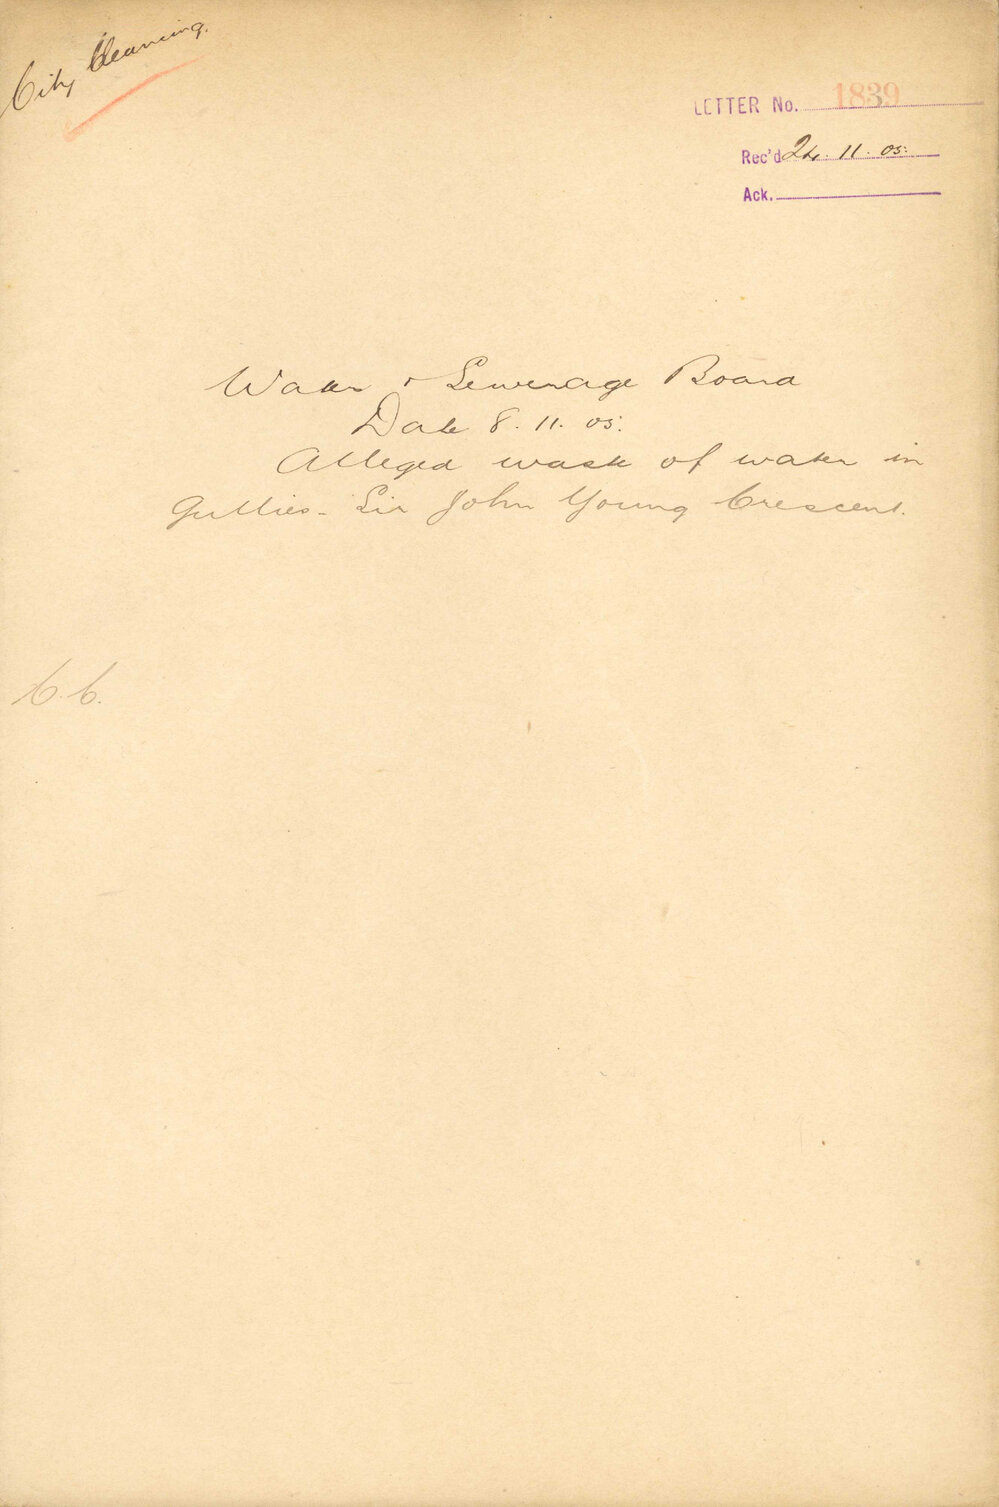 City Cleansing.
LETTER No. 1839
Rec'd 24. 11. 05.
Ack.
Water & Sewerage Board
Date 8. 11. 05.
Alleged waste of water in
Gullies - Sir John Young Crescent.
C.C.